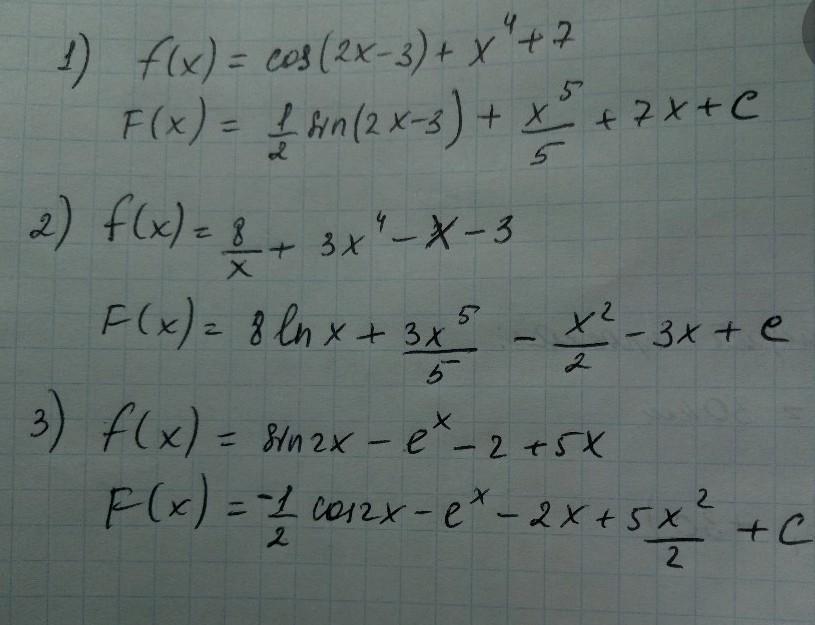 1) f(x) = cos(2x-3) + x⁴ + 7
F(x) = 1/2 sin(2x-3) + x⁵/5 + 7x + C
2) f(x) = 8/x + 3x⁴ - x - 3
F(x) = 8 ln x + 3x⁵/5 - x²/2 - 3x + C
3) f(x) = sin2x - eˣ - 2 + 5x
F(x) = -1/2 cos2x - eˣ - 2x + 5x²/2 + C